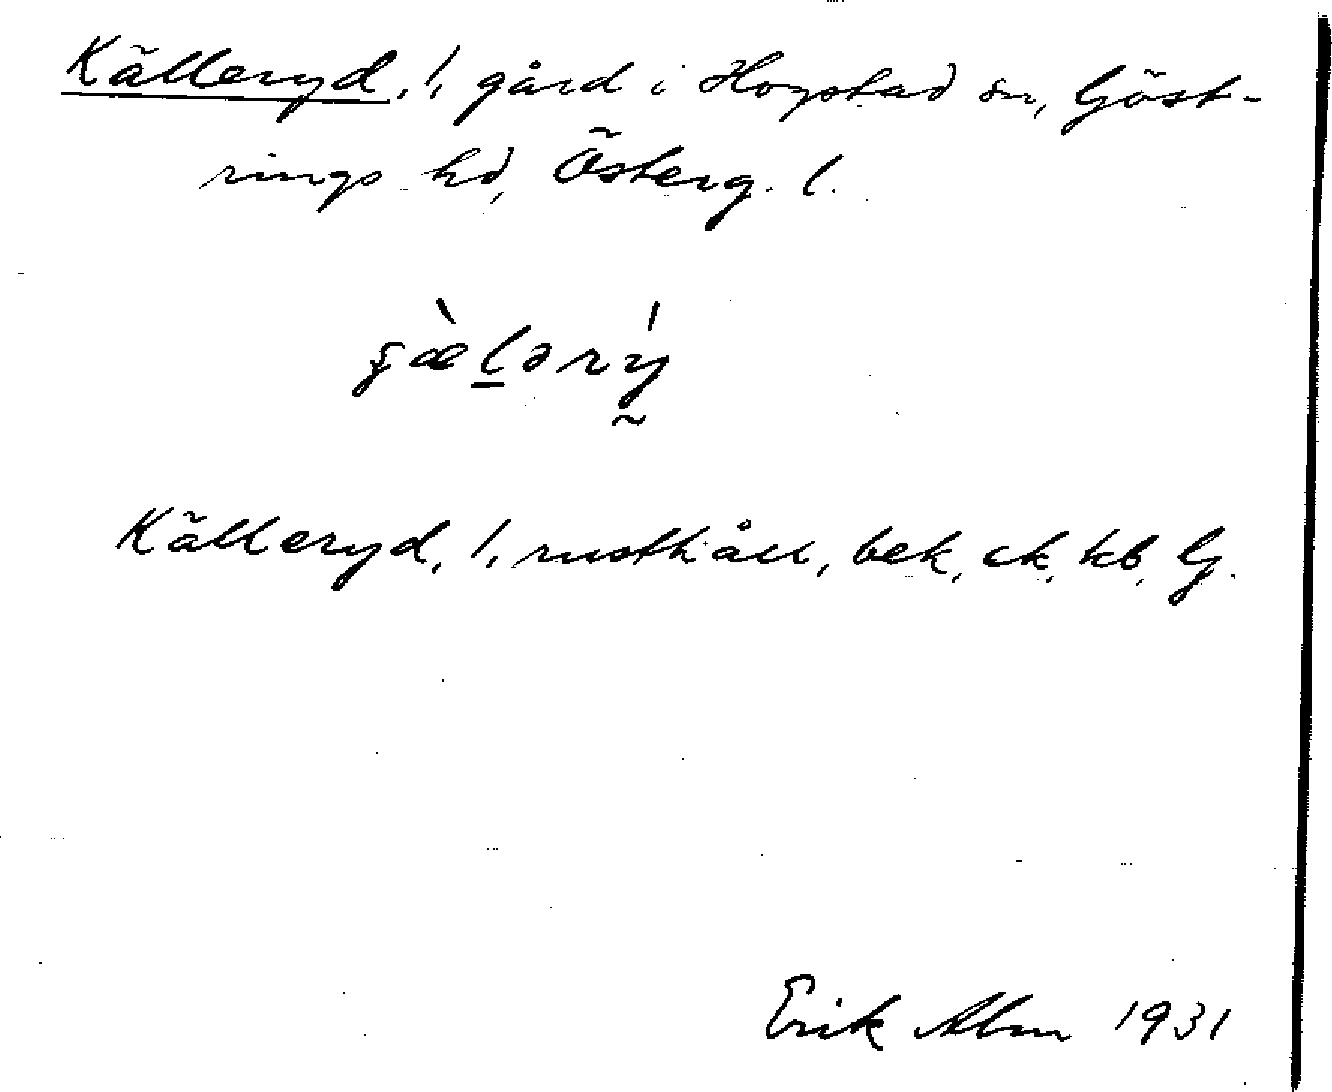 Källeryd, 1, gård i Hogstad sn, Göst-
rings hd, Österg. l.
Källeryd, 1, rusthåll, bek, ek, kb, Gj.
Erik Alm 1931